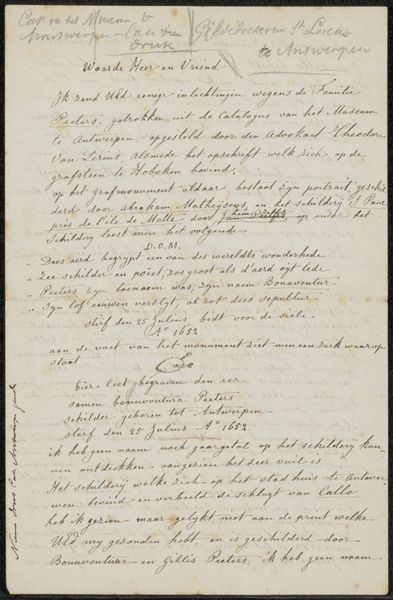 Cat. van het Museum
Antwerpen
druk
Gildeboek van St Lucas
te Antwerpen
Waarde Heer en Vriend
Ik zend UEd eenige inlichtingen wegens de Familie
Peeters, getrokken uit de Catalogus van het Museum
te Antwerpen, opgesteld door den Advokaat Theodor
Van Lerius, Alsmede het opschrift welk zich op de
grafsteen te Hoboken bevind.
op het grafmonument aldaar, bestaat zyn portrait, geschil
derd door Abraham Matheyssens, en het schildery S Paul
près de l'ile de Malte door
schildery leest men het volgende
D.O.M.
Dees aerd begrypt een van des wereldts wonderhede
Zee schilder en poëet, zoo groot als d'aerd oyt lede
Peeters zyn toenaem was, zyn naem Bonaventuur
Syn lof eeuwen verslyt, al rot dees sepultuer
sterf den 25 Julius bidt voor de siele
Ao 1652.
aan de voet van het monument ziet men een zerk waar op
staat
hier leet begraven den eer
samen bonaventura Peeters
schilder geboren tot Antwerpen
sterf den 25 Julius Ao 1652.
ik heb geen naam noch jaargetal op het schildery kun-
nen ontdekken aangezien het zeer vuil is
Het schildery welke zich op het stadhuis te Antwer-
pen bevind en verbeeld de schlagt van Callo
heb ik gezien maar gelykt niet aan de print welke
UEd my gezonden hebt en is geschilderd door
Bonaventuur en Gillis Peeters, ik heb geen naam